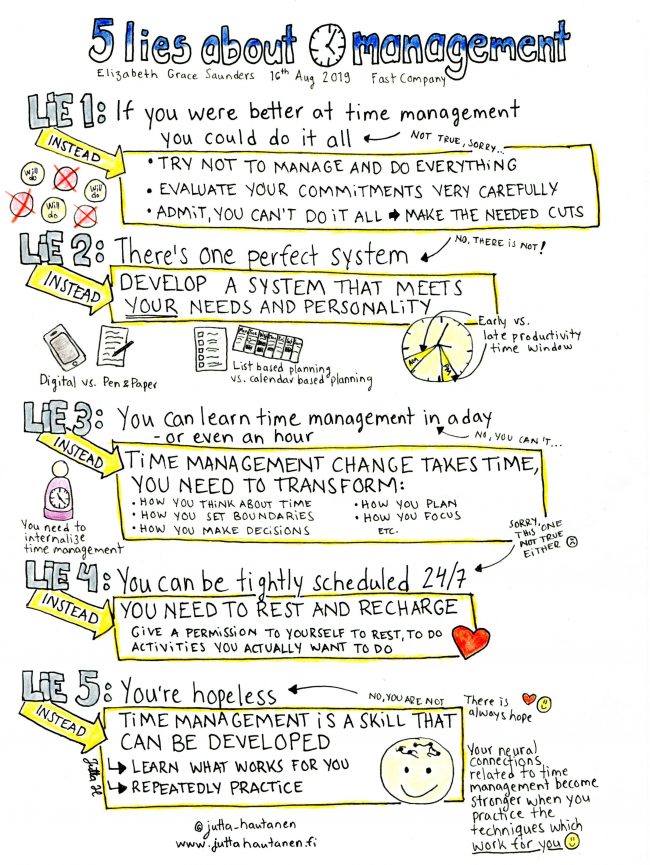 5 lies about management
Elizabeth Grace Saunders 16th Aug 2019 Fast Company
LiE 1: If you were better at time management
you could do it all
NOT TRUE, SORRY...
INSTEAD
• TRY NOT TO MANAGE AND DO EVERYTHING
• EVALUATE YOUR COMMITMENTS VERY CAREFULLY
• ADMIT, YOU CAN'T DO IT ALL ➡ MAKE THE NEEDED CUTS
Will do
Will do
Will do
LiE 2: There's one perfect system
NO, THERE IS NOT!
INSTEAD
DEVELOP A SYSTEM THAT MEETS
YOUR NEEDS AND PERSONALITY
Digital vs. Pen & Paper
List based planning
vs. calendar based planning
Early vs.
late productivity
time window
AM
PM
LiE 3: You can learn time management in a day
- or even an hour
NO, YOU CAN'T...
INSTEAD
TiME MANAGEMENT CHANGE TAKES TiME,
YOU NEED TO TRANSFORM:
• HOW YOU THINK ABOUT TIME
• HOW YOU SET BOUNDARIES
• HOW YOU MAKE DECISIONS
• HOW YOU PLAN
• HOW YOU FOCUS
ETC.
You need to
internalize
time management
SORRY,
THIS ONE
NOT TRUE
EITHER ☹
LiE 4: You can be tightly scheduled 24/7
INSTEAD
YOU NEED TO REST AND RECHARGE
GIVE A PERMISSION TO YOURSELF TO REST, TO DO
ACTIVITIES YOU ACTUALLY WANT TO DO
LiE 5: You're hopeless
NO, YOU ARE NOT
There is
always hope
INSTEAD
TiME MANAGEMENT iS A SKiLL THAT
CAN BE DEVELOPED
↳ LEARN WHAT WORKS FOR YOU
↳ REPEATEDLY PRACTICE
Jutta H
Your neural
connections
related to time
management become
stronger when you
practice the
techniques which
work for you
@jutta_hautanen
www.juttahautanen.fi